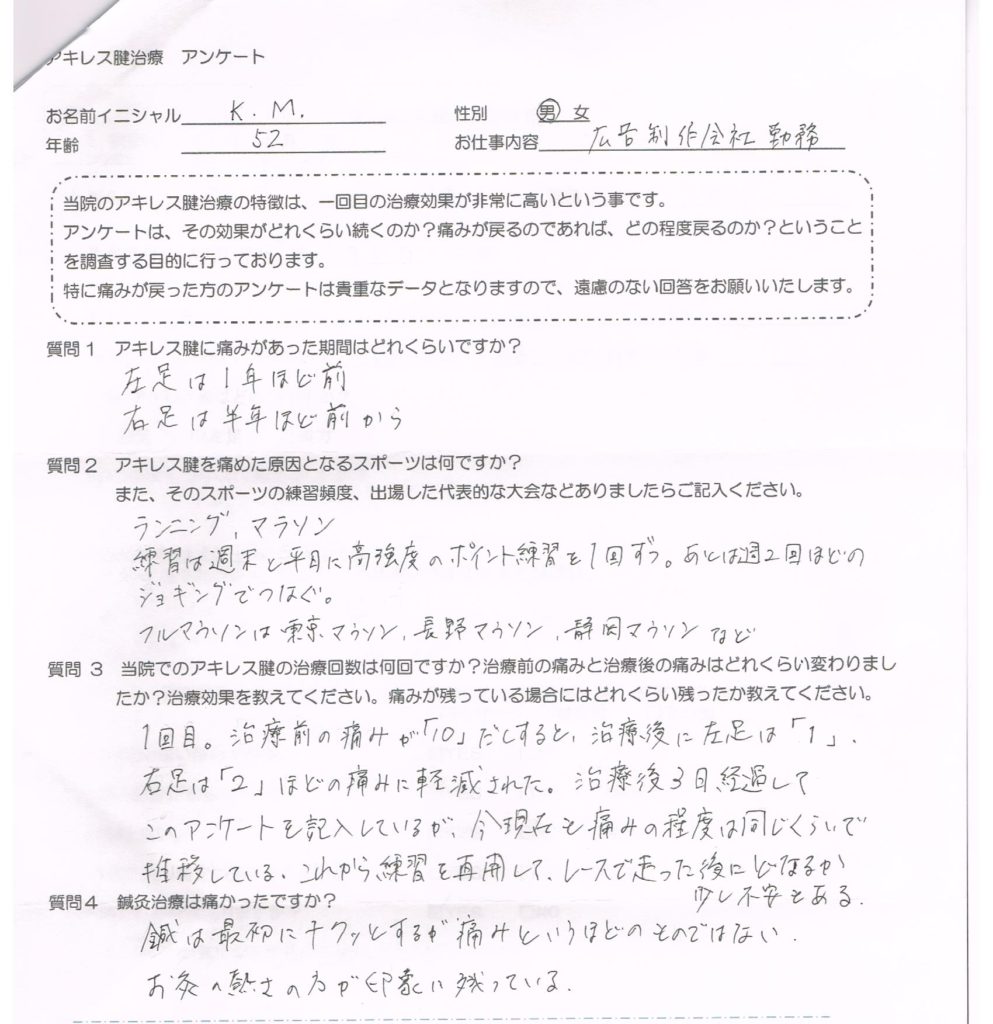 アキレス腱治療 アンケート
お名前イニシャル K. M. 性別 男 女
年齢 52 お仕事内容 広告制作会社勤務
当院のアキレス腱治療の特徴は、一回目の治療効果が非常に高いという事です。
アンケートは、その効果がどれくらい続くのか？痛みが戻るのであれば、どの程度戻るのか？ということ
を調査する目的に行っております。
特に痛みが戻った方のアンケートは貴重なデータとなりますので、遠慮のない回答をお願いいたします。
質問１ アキレス腱に痛みがあった期間はどれくらいですか？
左足は1年ほど前
右足は半年ほど前から
質問２ アキレス腱を痛めた原因となるスポーツは何ですか？
また、そのスポーツの練習頻度、出場した代表的な大会などありましたらご記入ください。
ランニング, マラソン
練習は週末と平日に高強度のポイント練習を1回ずつ。あとは週2回ほどの
ジョギングでつなぐ。
フルマラソンは東京マラソン, 長野マラソン, 静岡マラソンなど
質問 ３ 当院でのアキレス腱の治療回数は何回ですか？治療前の痛みと治療後の痛みはどれくらい変わりまし
たか？治療効果を教えてください。痛みが残っている場合にはどれくらい残ったか教えてください。
1回目。治療前の痛みが「10」だとすると、治療後に左足は「1」、
右足は「2」ほどの痛みに軽減された。治療後3日経過して
このアンケートを記入しているが、今現在も痛みの程度は同じくらいで
推移している。これから練習を再開して、レースで走った後にどなるか
少し不安もある.
質問４ 鍼灸治療は痛かったですか？
鍼は最初にチクッとするが痛みというほどのものではない.
お灸の熱さの方が印象に残っている.